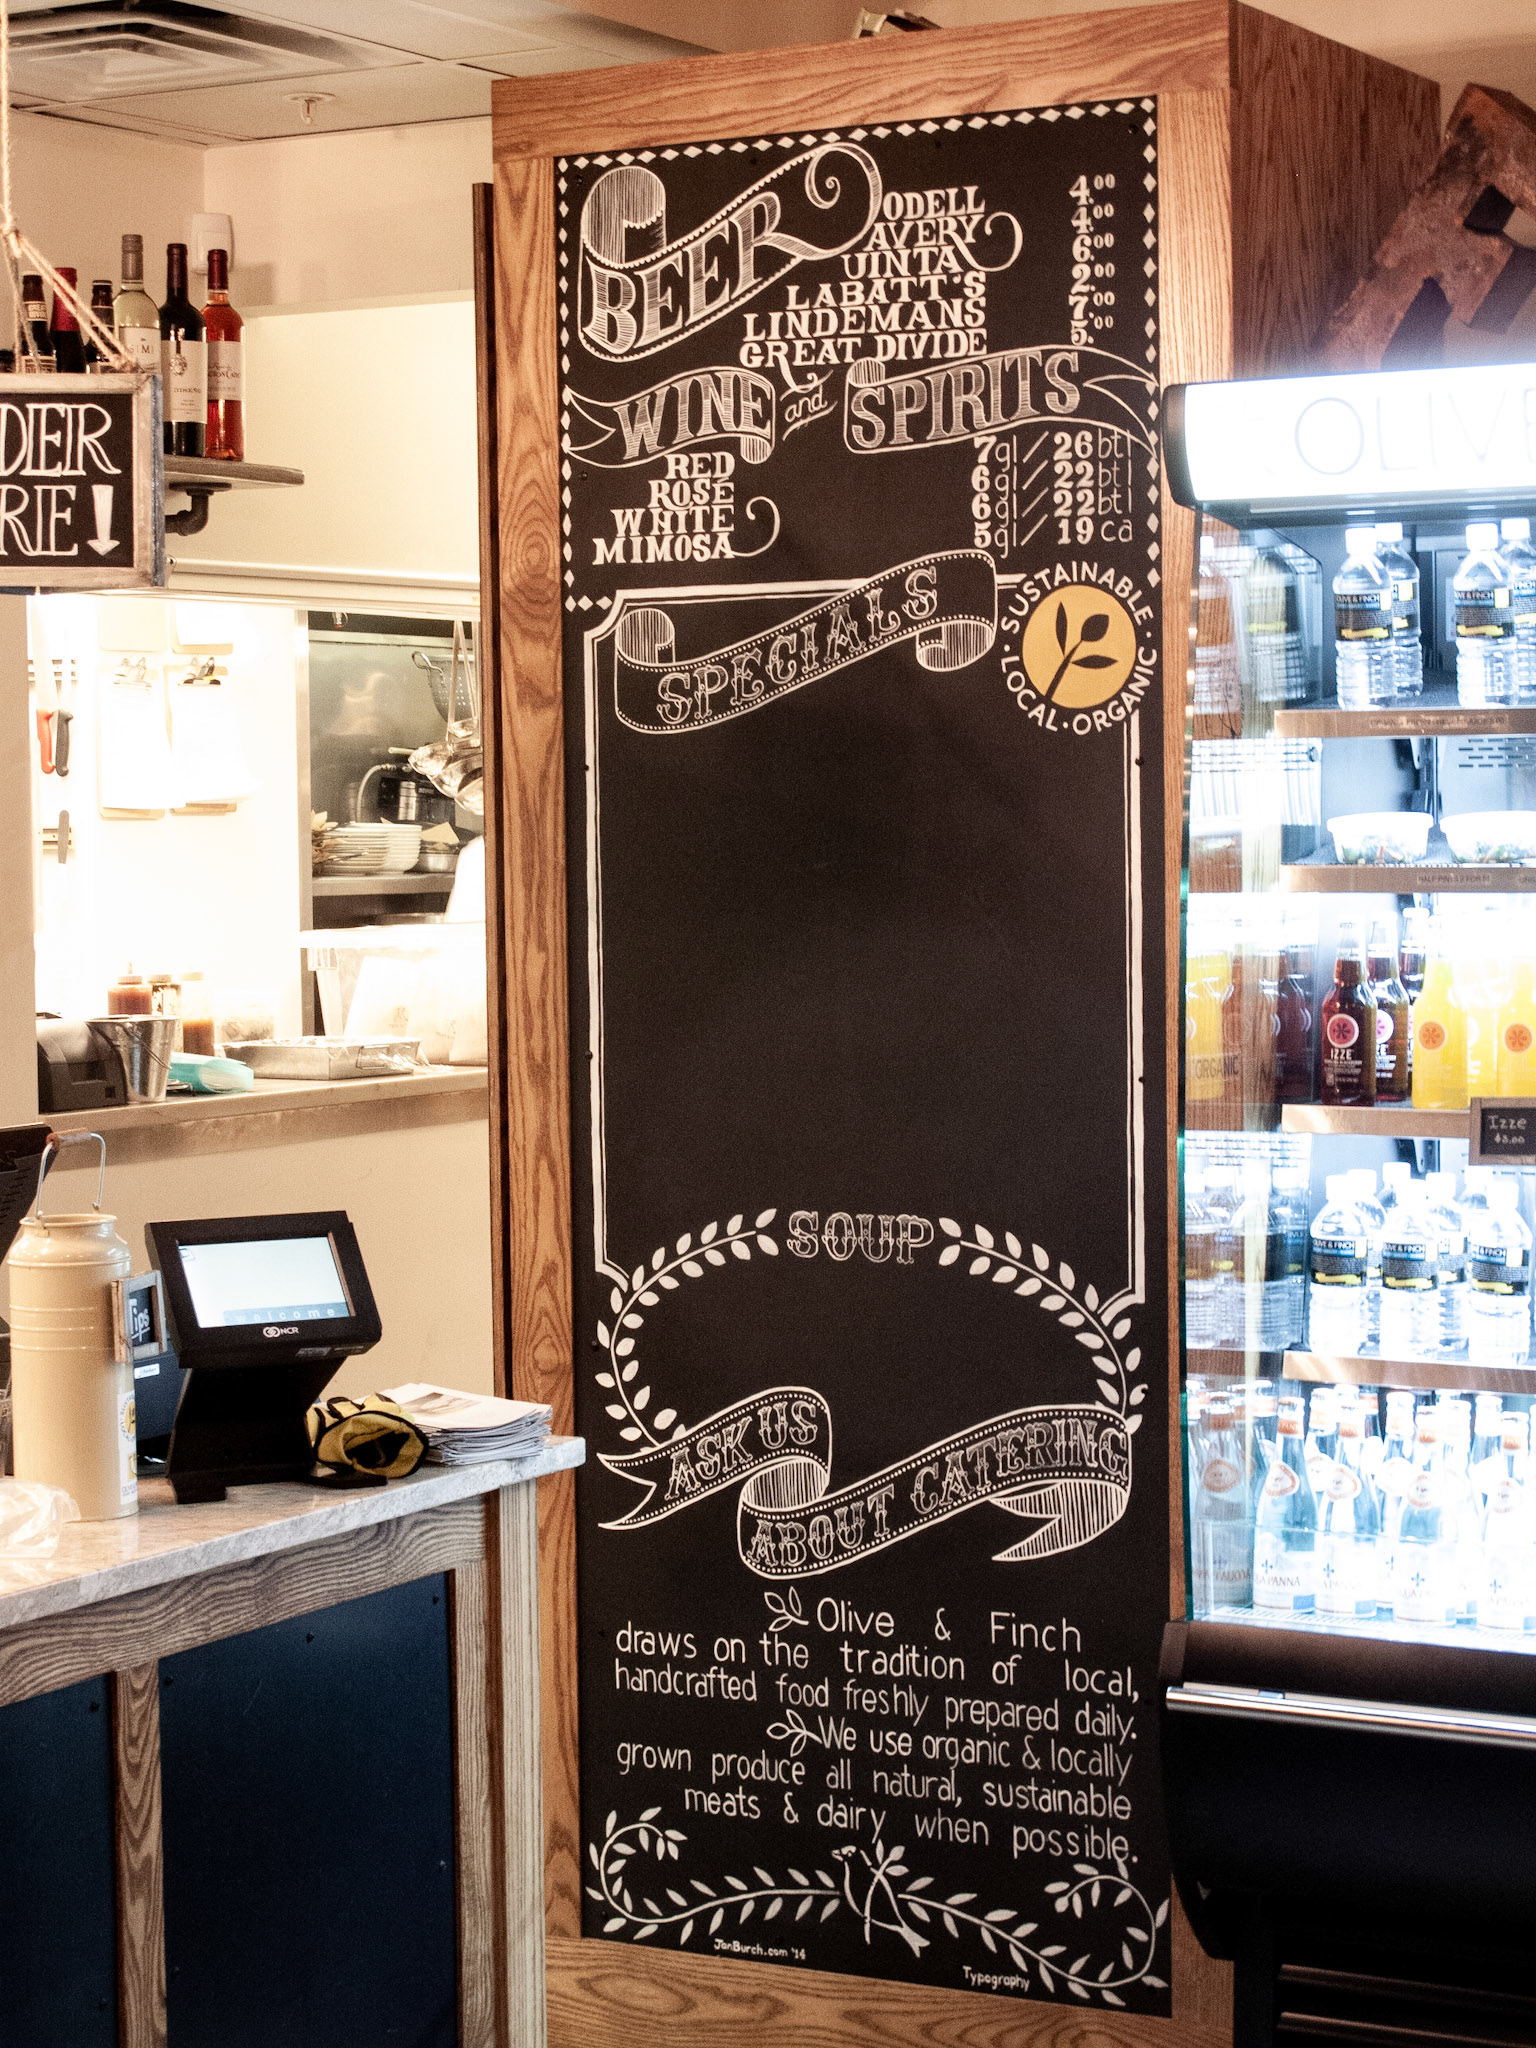 BEER
ODELL 4.00
AVERY 4.00
UINTA 6.00
LABATT'S 2.00
LINDEMANS 7.00
GREAT DIVIDE 5.00
WINE and SPIRITS
RED 7gl/26btl
ROSÉ 6gl/22btl
WHITE 6gl/22btl
MIMOSA 5gl/19ca
SPECIALS
SUSTAINABLE · LOCAL · ORGANIC ·
SOUP
ASK US
ABOUT CATERING
Olive & Finch
draws on the tradition of local,
handcrafted food freshly prepared daily.
We use organic & locally
grown produce all natural, sustainable
meats & dairy when possible.
JanBurch.com '14
Typography
DER
RE!
Tips
welcome
NCR
OLIVE
OLIVE & FINCH
OLIVE & FINCH
IZZE
ORGANIC
Izze
$3.00
OLIVE & FINCH
OLIVE & FINCH
OLIVE & FINCH
PANNA